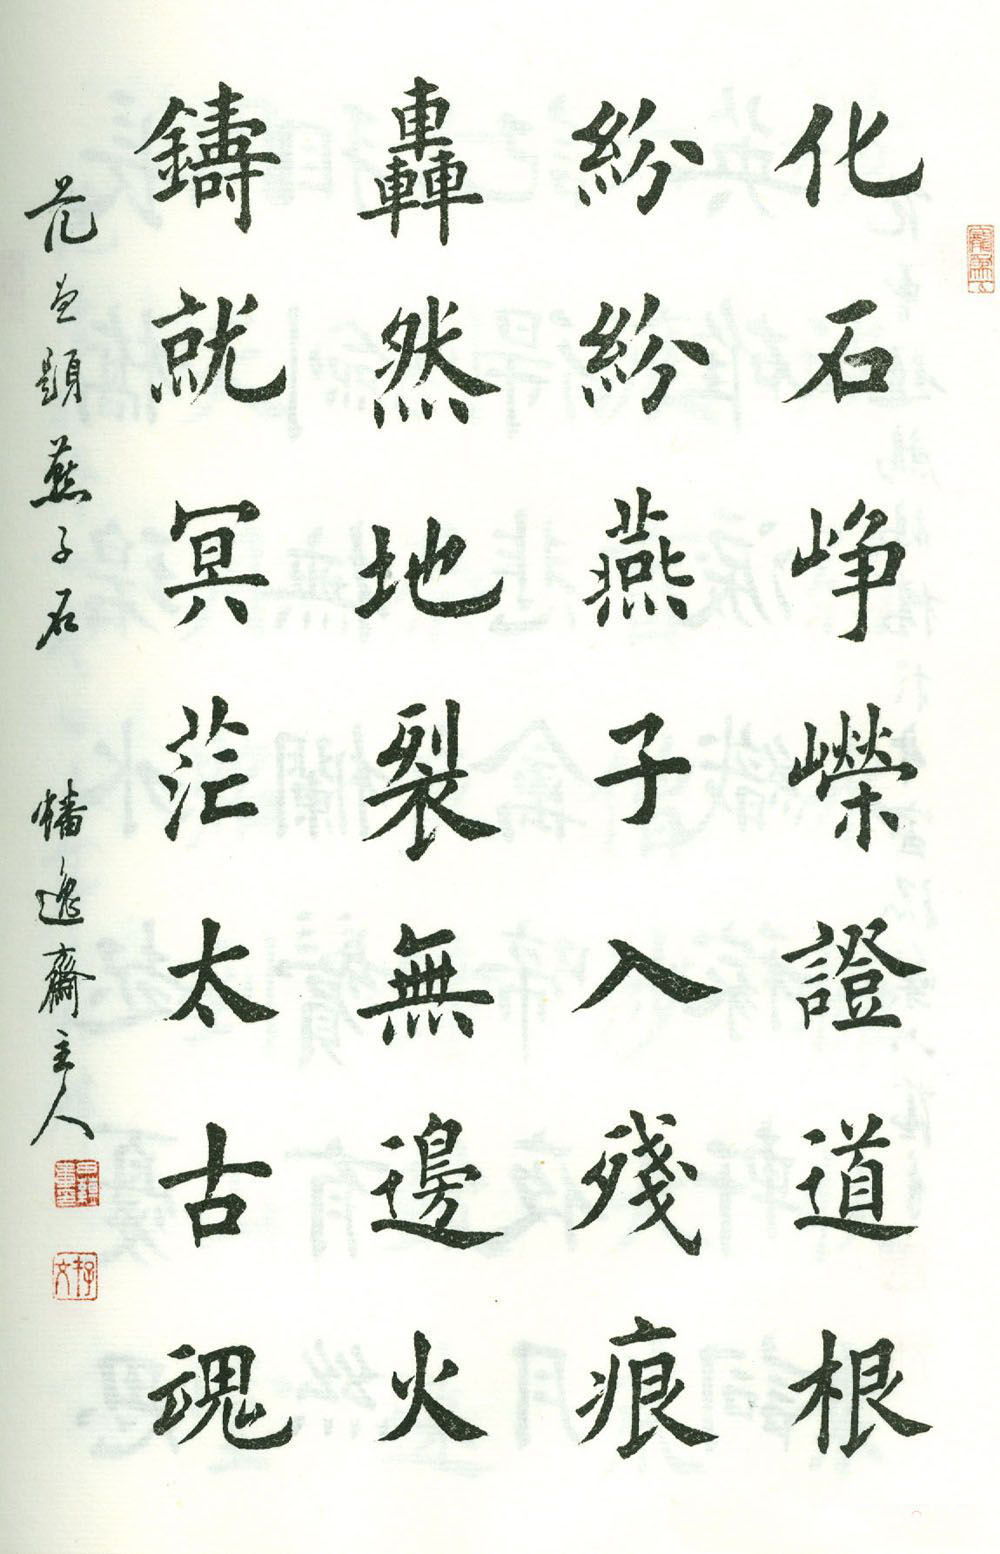 化石崢嶸證道根
紛紛燕子入殘痕
轟然地裂無邊火
鑄就冥茫太古魂
題燕子石
逸齋主人